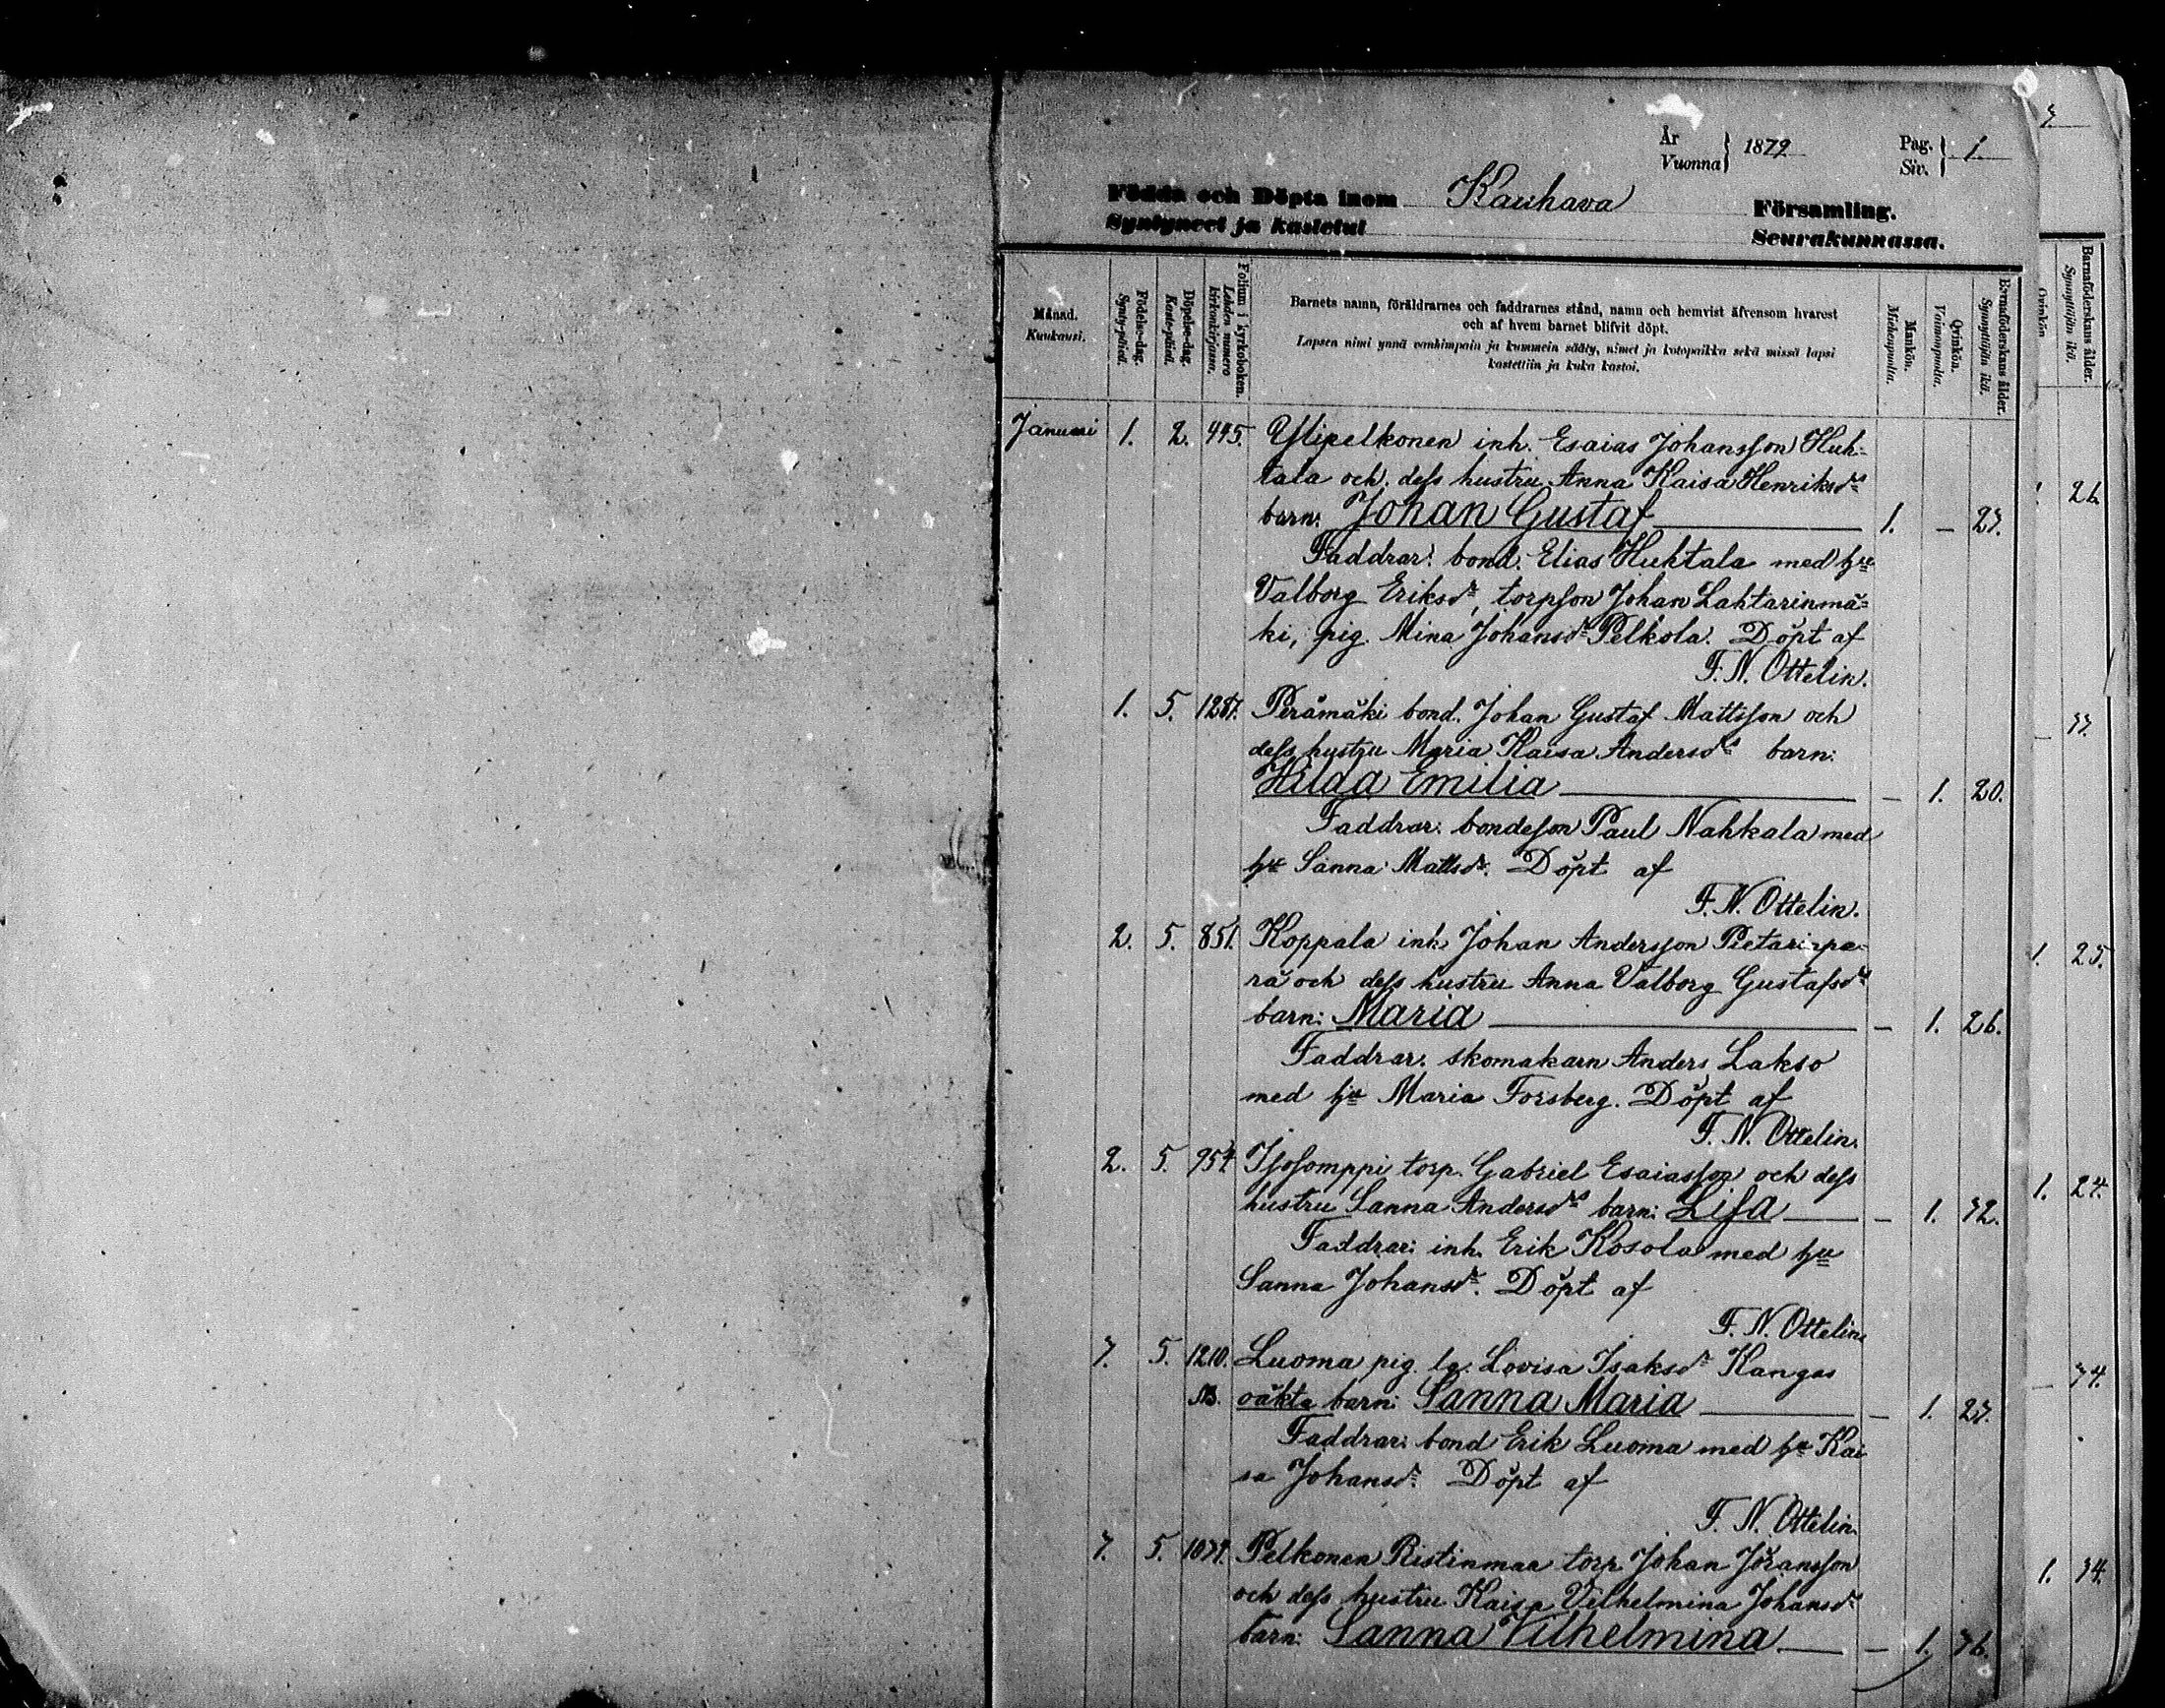 År
Vuonna } 1879
Pag.
Siv. } 1.
Födda och Döpta inom Kauhava Församling.
Syntyneet ja kastetut Seurakunnassa.
Månad.
Kuukausi.
Födelse-dag.
Synty-päivä.
Döpelse-dag.
Kaste-päivä.
Folium i kyrkoboken.
Lehden numero kirkonkirjassa.
Barnets namn, föräldrarnes och faddrarnes stånd, namn och hemvist äfvensom hvarest
och af hvem barnet blifvit döpt.
Lapsen nimi ynnä vanhimpain ja kummein sääty, nimet ja kotopaikka sekä missä lapsi
kastettiin ja kuka kastoi.
Mankön.
Miehenpuolia.
Qvinkön.
Vaimonpuolia.
Barnaföderskans ålder.
Synnyttäjän ikä.
Januari 1. 2. 445. Ylipelkonen inh. Esaias Johansson Huh-
tala och dess hustru Anna Kaisa Henriksdrs
barn: Johan Gustaf 1. — 23.
Faddrar: bond. Elias Huhtala med hru
Valborg Eriksdr, torpson Johan Lahtarinmä-
ki, pig. Mina Johansdr Pelkola. Döpt af
F. N. Ottelin.
1. 5. Perämäki bond. Johan Gustaf Mattsson och
dess hustru Maria Kaisa Andersdrs barn:
Hilda Emilia — 1. 20.
Faddrar: bondeson Paul Nahkala med
hu Sanna Mattsdr. Döpt af
F. N. Ottelin.
2. 5. 851. Koppala inh. Johan Andersson Pietarinpe-
rä och dess hustru Anna Valborg Gustafsdrs
barn: Maria — 1. 26.
Faddrar: skomakarn Anders Lakso
med hu Maria Forsberg. Döpt af
F. N. Ottelin.
2. 5. 954. Isosomppi torp. Gabriel Esaiasson och dess
hustru Sanna Andersdrs barn: Lisa — 1. 32.
Faddrar: inh. Erik Kosola med hru
Sanna Johansdr. Döpt af
F. N. Ottelin.
3. 5. 1210. Luoma pig. Lovisa Isaksdr Kangas
NB. oäkta barn: Sanna Maria — 1. 23.
Faddrar: bond Erik Luoma med hu Kai
sa Johansdr. Döpt af
F. N. Ottelin.
3. 5. Pelkonen Ristinmaa torp Johan Jöransson
och dess hustru Kaisa Vilhelmina Johansdr
barn: Sanna Vilhelmina — 1. 36.
3.
Qvinkön
Barnaföderskans ålder.
Synnyttäjän ikä.
26
— 33.
1. 25.
1. 24.
— 34.
1. 34.